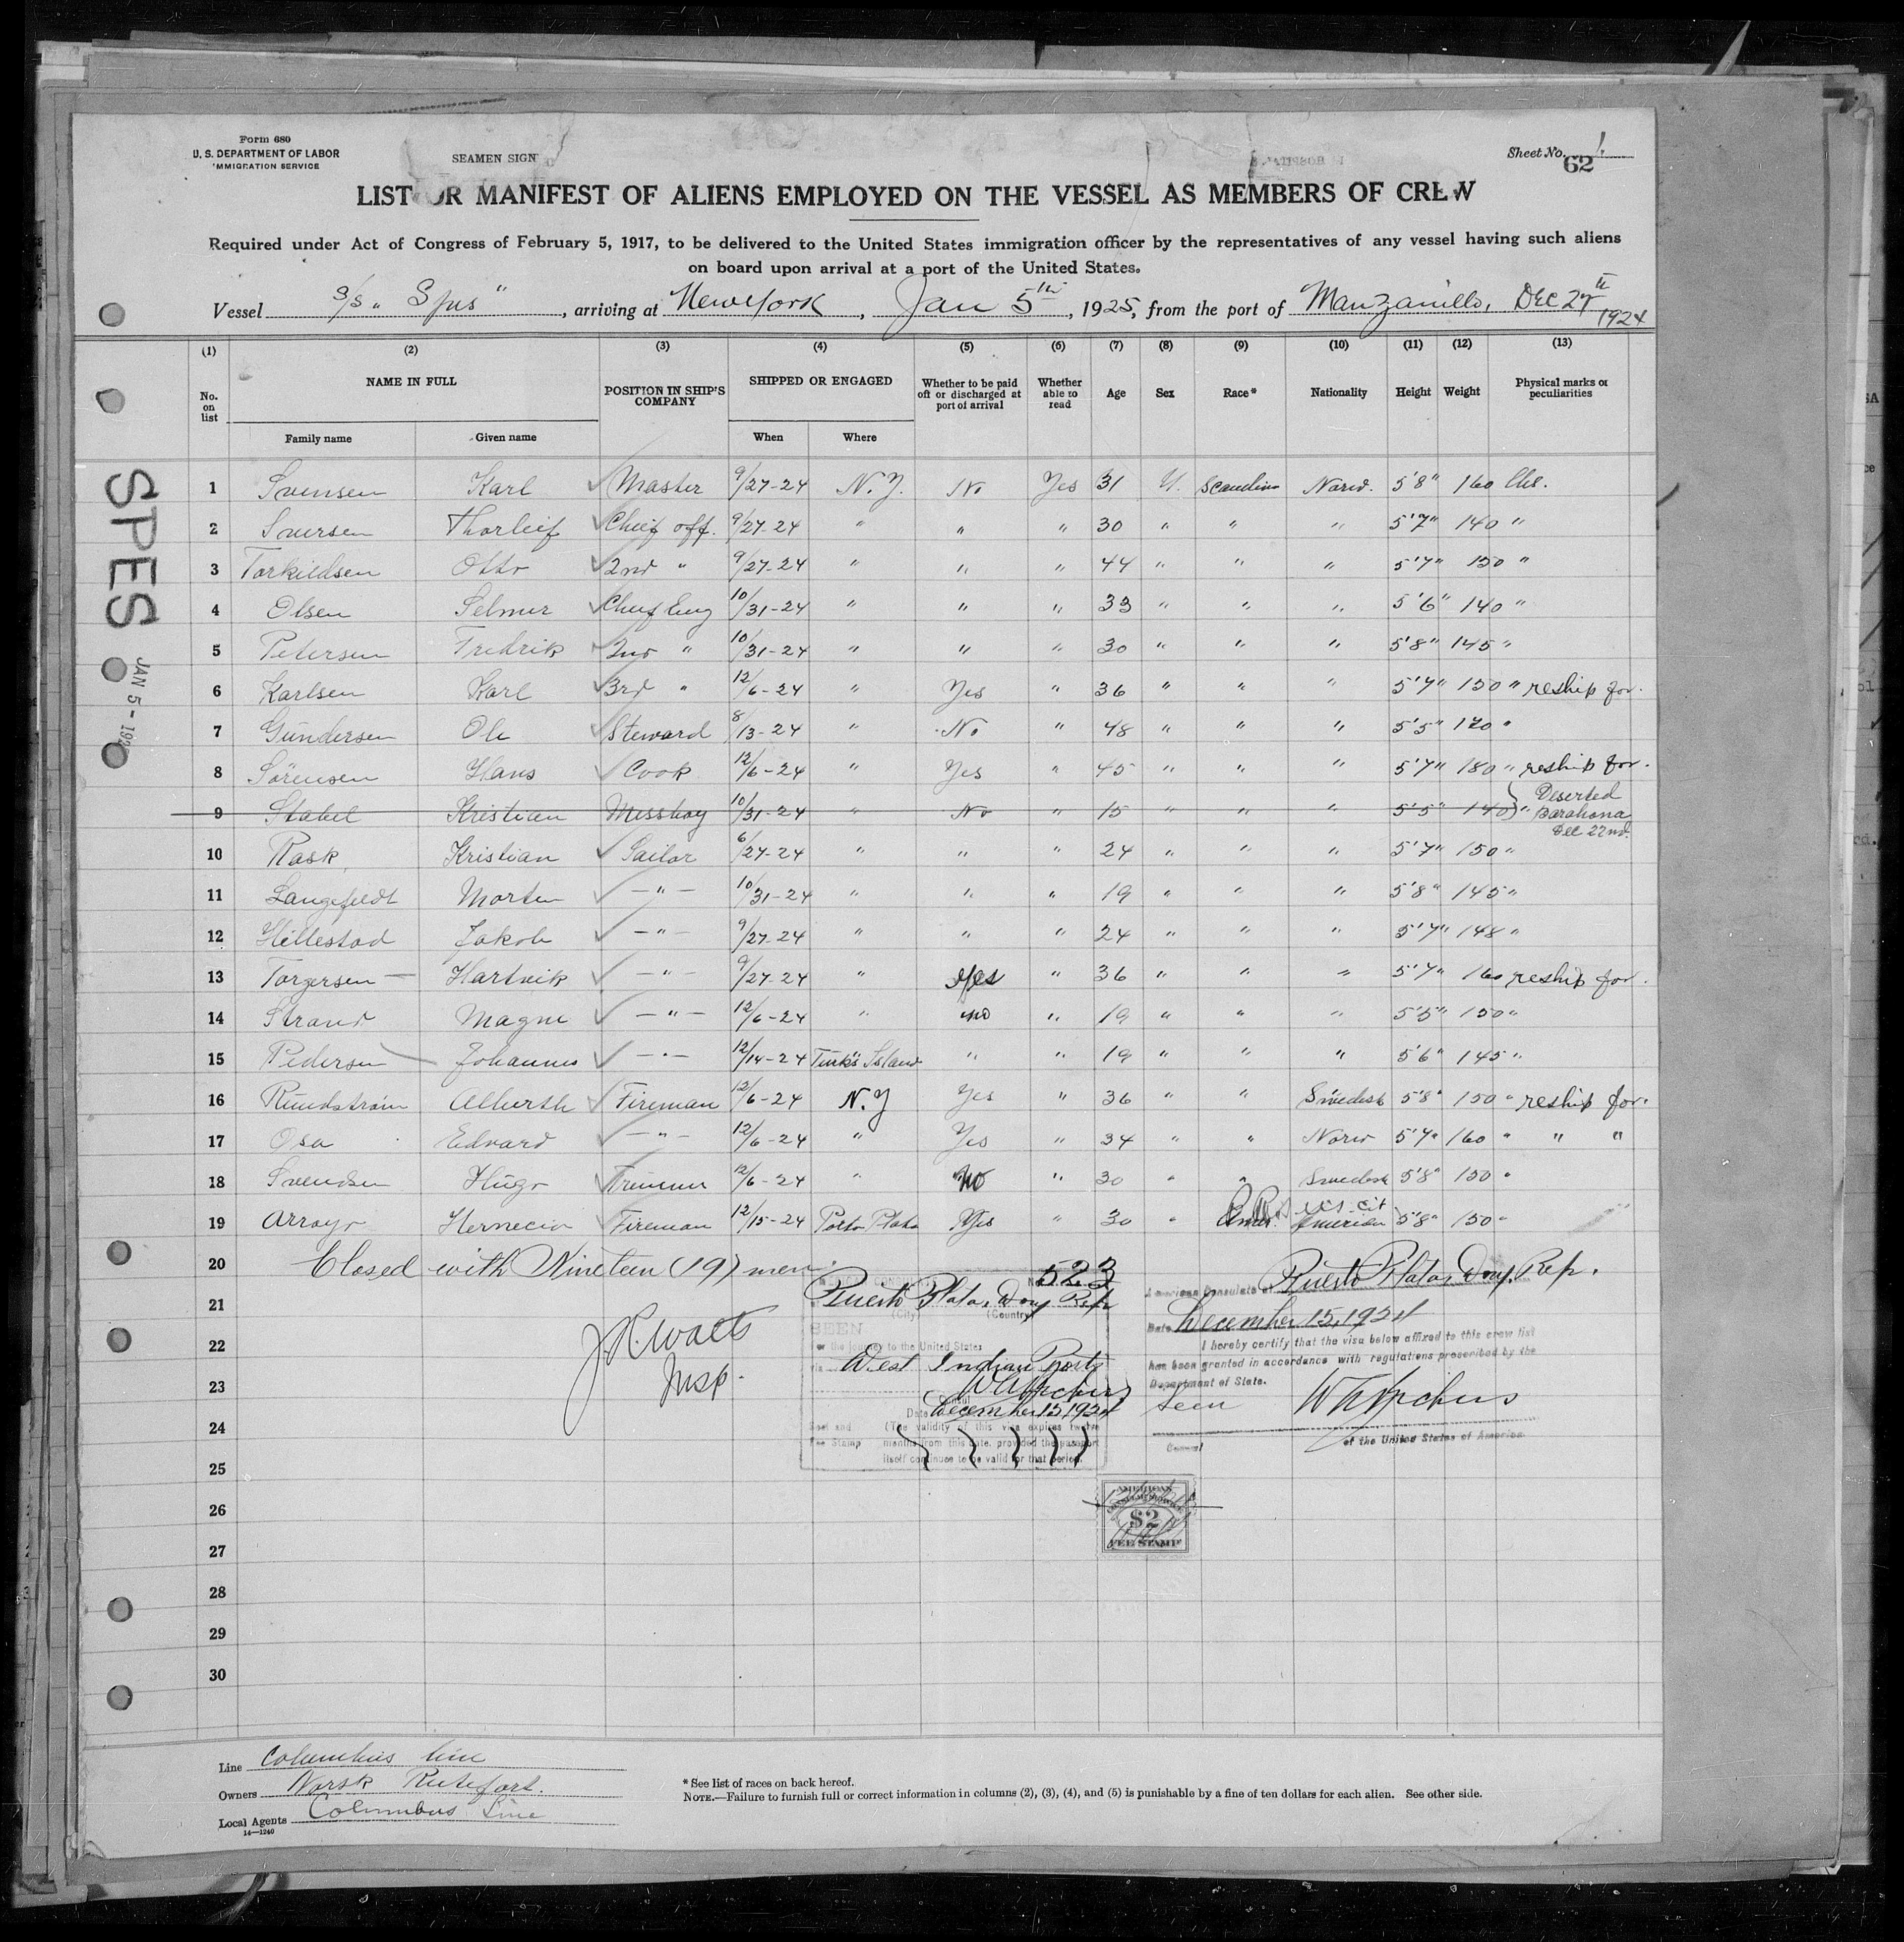 Form 680
U. S. DEPARTMENT OF LABOR
IMMIGRATION SERVICE
SEAMEN SIGN
Sheet No. 1.
62
LIST OR MANIFEST OF ALIENS EMPLOYED ON THE VESSEL AS MEMBERS OF CREW
Required under Act of Congress of February 5, 1917, to be delivered to the United States immigration officer by the representatives of any vessel having such aliens
on board upon arrival at a port of the United States.
Vessel S/S "Spes", arriving at New York, Jan 5th, 1925, from the port of Manzanillo, Dec 27th 1924
(1) (2) (3) (4) (5) (6) (7) (8) (9) (10) (11) (12) (13)
No. on list NAME IN FULL POSITION IN SHIP'S COMPANY SHIPPED OR ENGAGED Whether to be paid off or discharged at port of arrival Whether able to read Age Sex Race* Nationality Height Weight Physical marks or peculiarities
Family name Given name When Where
SPES
JAN 5 - 192
1 Svensen Karl Master 9/27-24 N.Y. No Yes 31 M. Scandinv Norw. 5'8" 160 lbs.
2 Sversen Thorleif Chief off. 9/27-24 " " " 30 " " " 5'7" 140 "
3 Torkildsen Otto 2nd " 9/27-24 " " " 44 " " " 5'7" 150 "
4 Olsen Selmer Chief Eng 10/31-24 " " " 33 " " " 5'6" 140 "
5 Petersen Fredrik 2nd " 10/31-24 " " " 30 " " " 5'8" 145 "
6 Karlsen Karl 3rd " 12/6-24 " Yes " 36 " " " 5'7" 150 " reship for.
7 Gundersen Ole Steward 8/13-24 " No " 48 " " " 5'5" 170 "
8 Sørensen Hans Cook 12/6-24 " Yes " 45 " " " 5'7" 180 " reship for.
9 Stabel Kristian Messboy 10/31-24 " No " 15 " " " 5'5" 140 " Deserted Barahona Dec 22nd.
10 Rask Kristian Sailor 6/27-24 " " " 24 " " " 5'7" 150 "
11 Langefeldt Morten — " — 10/31-24 " " " 19 " " " 5'8" 145 "
12 Hillestad Jakob — " — 9/27-24 " " " 24 " " " 5'7" 148 "
13 Torgersen Hartvik — " — 9/27-24 " Yes " 36 " " " 5'7" 160 reship for.
14 Strand Magne — " — 12/6-24 " no " 19 " " " 5'5" 150 "
15 Pedersen Johannes — " — 12/14-24 Turk's Island " " 19 " " " 5'6" 145 "
16 Rundstrøm Alberth Fireman 12/6-24 N.Y Yes " 36 " " Swedish 5'8" 150 " reship for.
17 Osa Edvard — " — 12/6-24 " Yes " 34 " " Norw 5'7" 160 " " "
18 Svendsen Hugo Trimmer 12/6-24 " No " 30 " " Swedish 5'8" 150 "
19 Arroyo Fireman 12/15-24 Porto Plata Yes " 30 " U.S. cit American 5'8" 150 "
20 Closed with Nineteen (19) men.
21
22
23
24
25
26
27
28
29
30
Insp.
No. 523
Puerto Plata, Dom Rep
(City) (Country)
SEEN
For the journey to the United States
via West Indian Ports
Consul
Date December 15, 1924
(The validity of this visa expires twelve
months from this date, provided the passport
itself continues to be valid for that period.
Seal and
Fee Stamp
American Consulate at Puerto Plata, Dom. Rep.
Date December 15, 1924
I hereby certify that the visa below affixed to this crew list
has been granted in accordance with regulations prescribed by the
Department of State.
Seen
Consul of the United States of America
AMERICAN
CONSULAR SERVICE
$2
FEE STAMP
Line Columbus line
Owners Norsk Rutefart.
Local Agents Columbus Line
14—1240
* See list of races on back hereof.
NOTE.—Failure to furnish full or correct information in columns (2), (3), (4), and (5) is punishable by a fine of ten dollars for each alien. See other side.